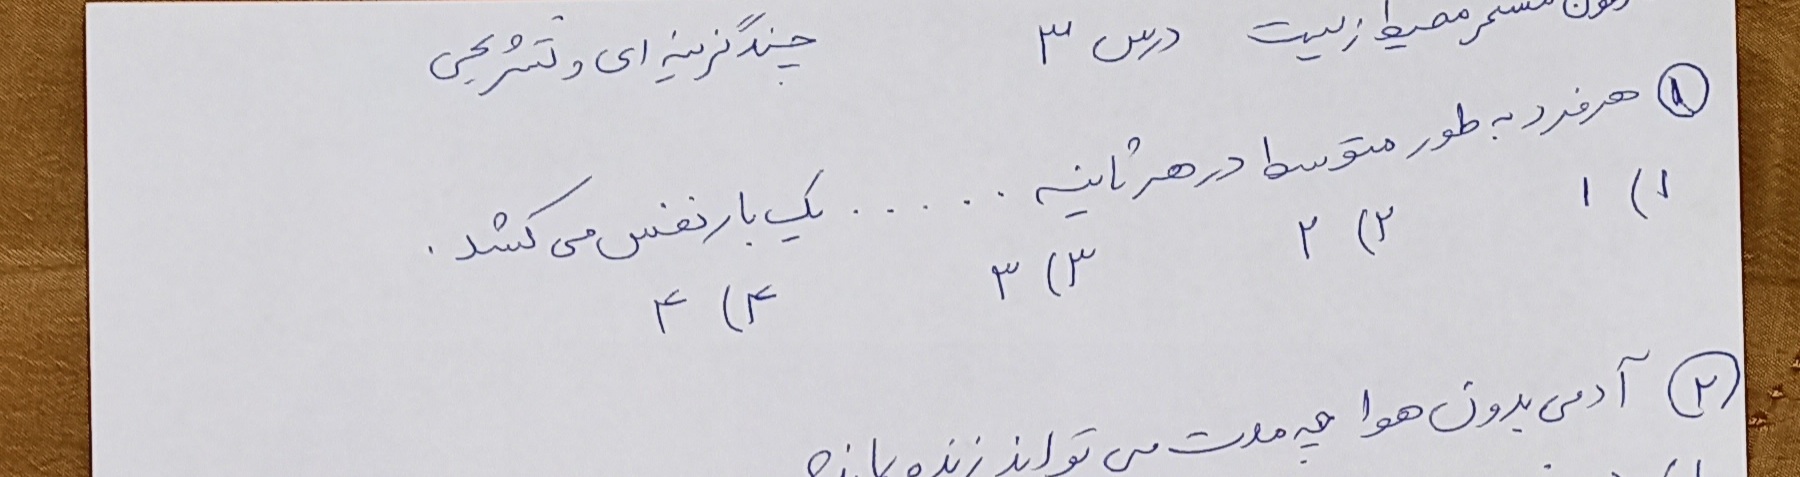 محیط زیست درس ۳ چندگزینه ای و تشریحی
۱ هر فرد به طور متوسط در هر ثانیه ..... یک بار نفس می کشد.
۱) ۱ ۲) ۲ ۳) ۳ ۴) ۴
۲ آدمی بدون هوا چه مدت می تواند زنده بماند